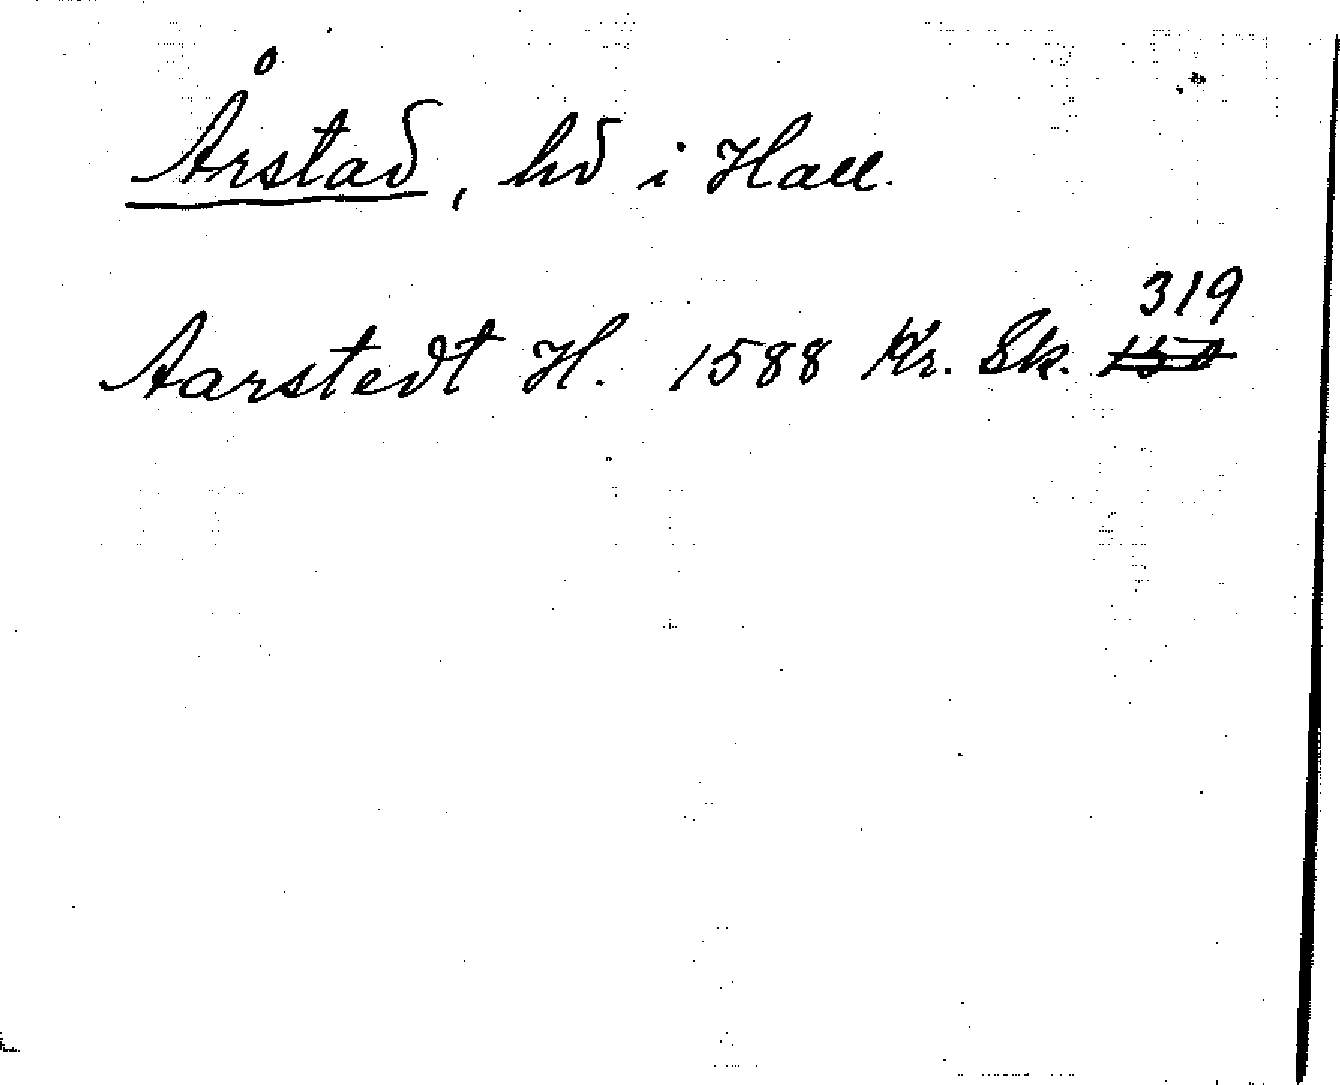 Årstad, hd i Hall.
Aarstedt H. 1588 Kr. Sk. 319